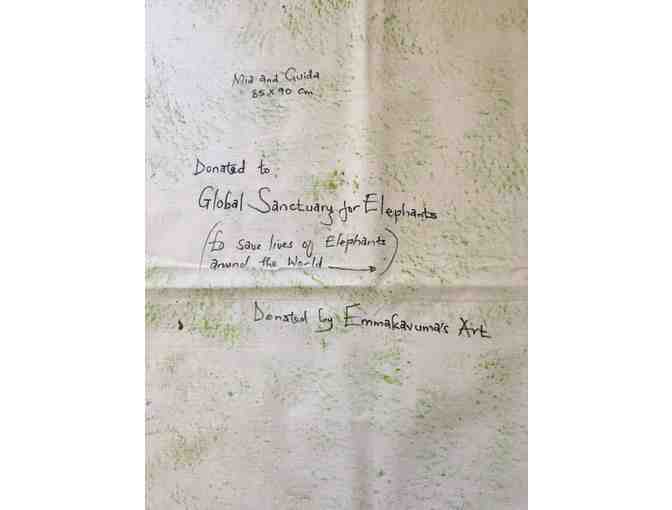 Mia and Guida
85 x 90 cm
Donated to:
Global Sanctuary for Elephants
(to save lives of Elephants
around the World →)
Donated by Emmakavuma's Art